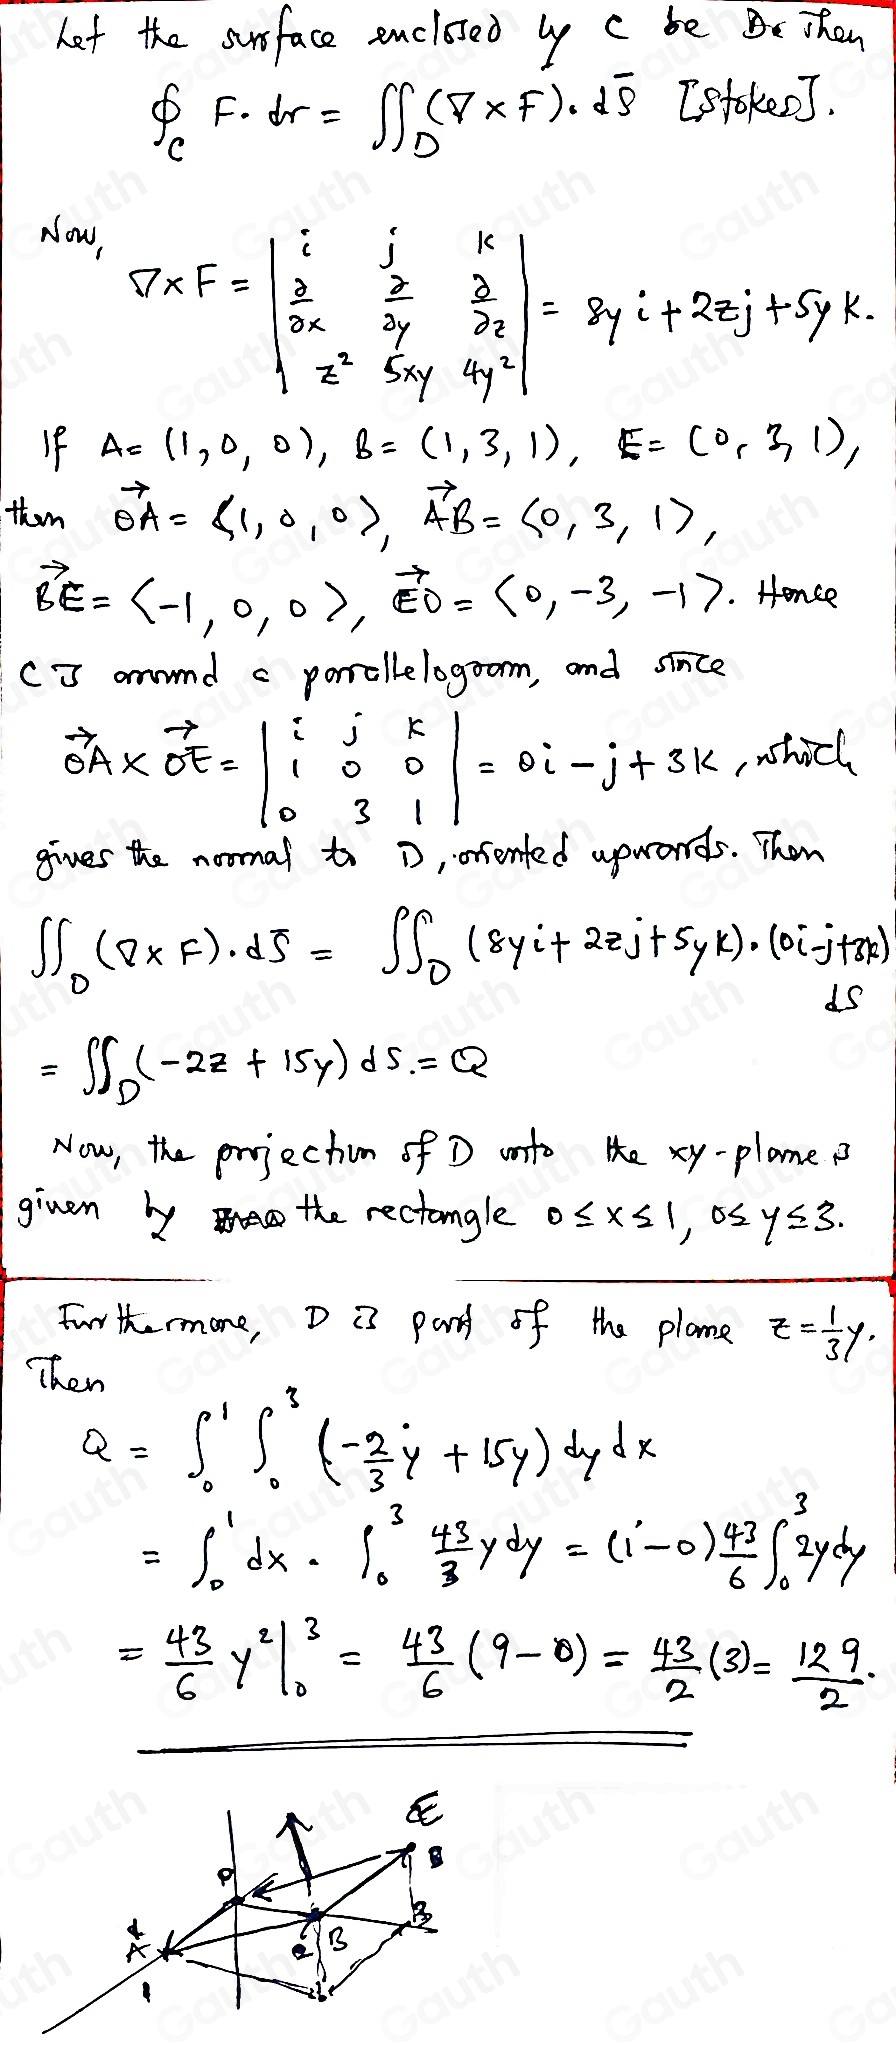 Let the surface enclosed by C be D. Then
∮_C F. dr = ∬_D (∇ × F). dS̄ [Stokes].
Now,
∇ × F = | i j k ; ∂/∂x ∂/∂y ∂/∂z ; z² 5xy 4y² | = 8y i + 2z j + 5y k.
If A = (1, 0, 0), B = (1, 3, 1), E = (0, 3, 1),
then OA⃗ = <1, 0, 0>, AB⃗ = <0, 3, 1>,
BE⃗ = <-1, 0, 0>, EO⃗ = <0, -3, -1>. Hence
C is around a parallelogram, and since
OA⃗ × OE⃗ = | i j k ; 1 0 0 ; 0 3 1 | = 0i - j + 3k, which
gives the normal to D, oriented upwards. Then
∬_D (∇ × F). dS̄ = ∬_D (8yi + 2zj + 5yk). (0i - j + 3k)
dS
= ∬_D (-2z + 15y) dS. = Q
Now, the projection of D onto the xy-plane is
given by the rectangle 0 ≤ x ≤ 1, 0 ≤ y ≤ 3.
Furthermore, D is part of the plane z = 1/3 y.
Then
Q = ∫₀¹ ∫₀³ (-2/3 y + 15y) dy dx
= ∫₀¹ dx . ∫₀³ 43/3 y dy = (1-0) 43/6 ∫₀³ 2y dy
= 43/6 y² |₀³ = 43/6 (9-0) = 43/2 (3) = 129/2.
E
B
A
B
1